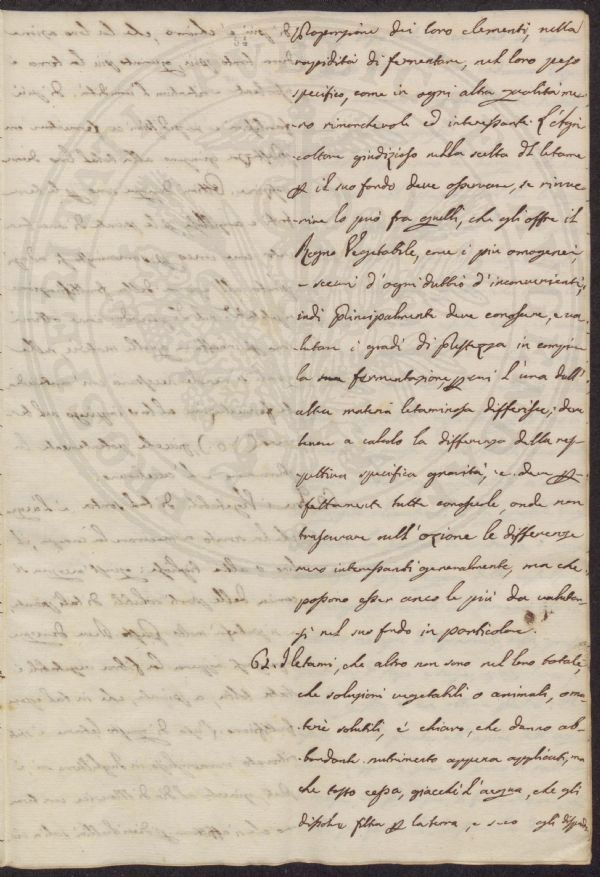 Proporzione dei loro elementi, nella
rapidità di fermentare, nel loro peso
specifico, come in ogni altra qualità me
no rimarchevole ed interessante. L'Agri
coltore giudizioso nella scelta del letame
per il suo fondo deve osservare, se rinve
nire lo può fra quelli, che gli offre il
Regno Vegetabile, come i più omogenei
e sceuri d'ogni dubbio d'inconvenienti,
indi principalmente deve conoscere, e va
lutare i gradi di prestezza in compire
la sua fermentazione, per cui l'una dall'
altra materia letaminosa differisce; deve
tenere a calcolo la differenza della res
pettiva specifica gravità, e deve per
fettamente tutte conoscerle, onde non
trascurare nell'ozione le differenze
meno interessanti generalmente, ma che
possono esser anco le più da valutar
si nel suo fondo in particolare.
62. I letami, che altro non sono nel loro totale,
che soluzioni vegetabili o animali, o ma
terie solubili, è chiaro, che danno ab-
bondante nutrimento appena applicati, ma
che tosto cessa, giacchè l'acqua, che gli
dissolve filtra per la terra, e seco gli